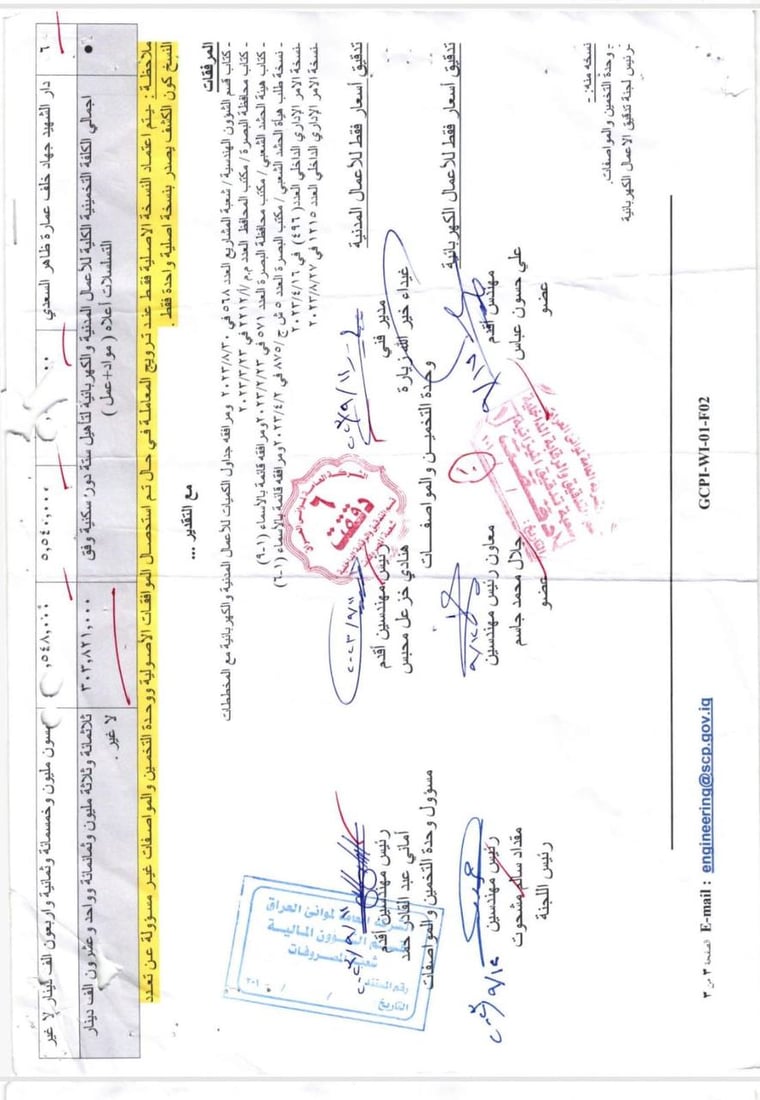 ٦ دار الشهيد جهاد خلف عمارة ظاهر السعدي ٥,٥٤٠,٠٠٠ ٥٤٨,٠٠٠ مليون وخمسمائة وثمانية واربعون الف دينار لا غير
اجمالي الكلفة التخمينية الكلية للأعمال المدنية والكهربائية لتأهيل ستة دور سكنية وفق ٣٠٣,٨٢١,٠٠٠ ثلاثمائة وثلاثة مليون وثمانمائة وواحد وعشرون الف دينار
التسلسلات اعلاه ( مواد+عمل ) لا غير .
ملاحظة : يتم اعتماد النسخة الاصلية فقط عند ترويج المعاملة في حال تم استحصال الموافقات الأصولية ووحدة التخمين والمواصفات غير مسؤولة عن تعدد
النسخ كون الكشف يصدر بنسخة اصلية واحدة فقط .
مع التقدير ...
المرفقات
- كتاب قسم الشؤون الهندسية / شعبة المشاريع العدد ٥٦٨ في ٢٠٢٣/٨/٣٠ ومرافقه جداول الكميات للأعمال المدنية والكهربائية مع المخططات
- كتاب محافظة البصرة / مكتب المحافظ العدد م.م /٢٢١٢ في ٢٠٢٣/٣/٢٣
- كتاب هيئة الحشد الشعبي / مكتب محافظة البصرة العدد ٥٧١ في ٢٠٢٣/٢/٢٣ ومرافقه قائمة بالاسماء (١-٩)
- نسخة طلب هيأة الحشد الشعبي / مكتب البصرة العدد ٥ ش ج /٨٧٥ في ٢٠٢٣/٤/٢ ومرافقه قائمة بالاسماء (١-٦)
نسخة الامر الإداري الداخلي العدد (٤٩٦) في ٢٠٢٣/٤/١٦
نسخة الامر الإداري الداخلي العدد ١٢١٥ في ٢٠٢٣/٨/٢٧
تدقيق أسعار فقط للأعمال المدنية
غيداء خير الله زيارة
مدير فني
هنادي خزعل محبس
رئيس مهندسين أقدم
أماني عبد القادر حمد
رئيس مهندسين أقدم
وحدة التخمين والمواصفات
مسؤول وحدة التخمين والمواصفات
٢٠٢٣/٩/١١
دققت
٦
الشركة العامة لموانئ العراق
قسم الشؤون المالية
شعبة المصروفات
رقم المستند
التاريخ / / ٢٠١
تدقيق أسعار فقط للأعمال الكهربائية
مهندس أقدم
معاون رئيس مهندسين
رئيس مهندسين
علي حسون عباس
جلال محمد جاسم
مقداد سالم مشحوت
عضو
عضو
رئيس اللجنة
نسخه منه:-
- وحدة التخمين والمواصفات.
- رئيس لجنة تدقيق الاعمال الكهربائية
GCPI-WI-01-F02
E-mail : engineering@scp.gov.iq
الصفحة ٣ من ٣